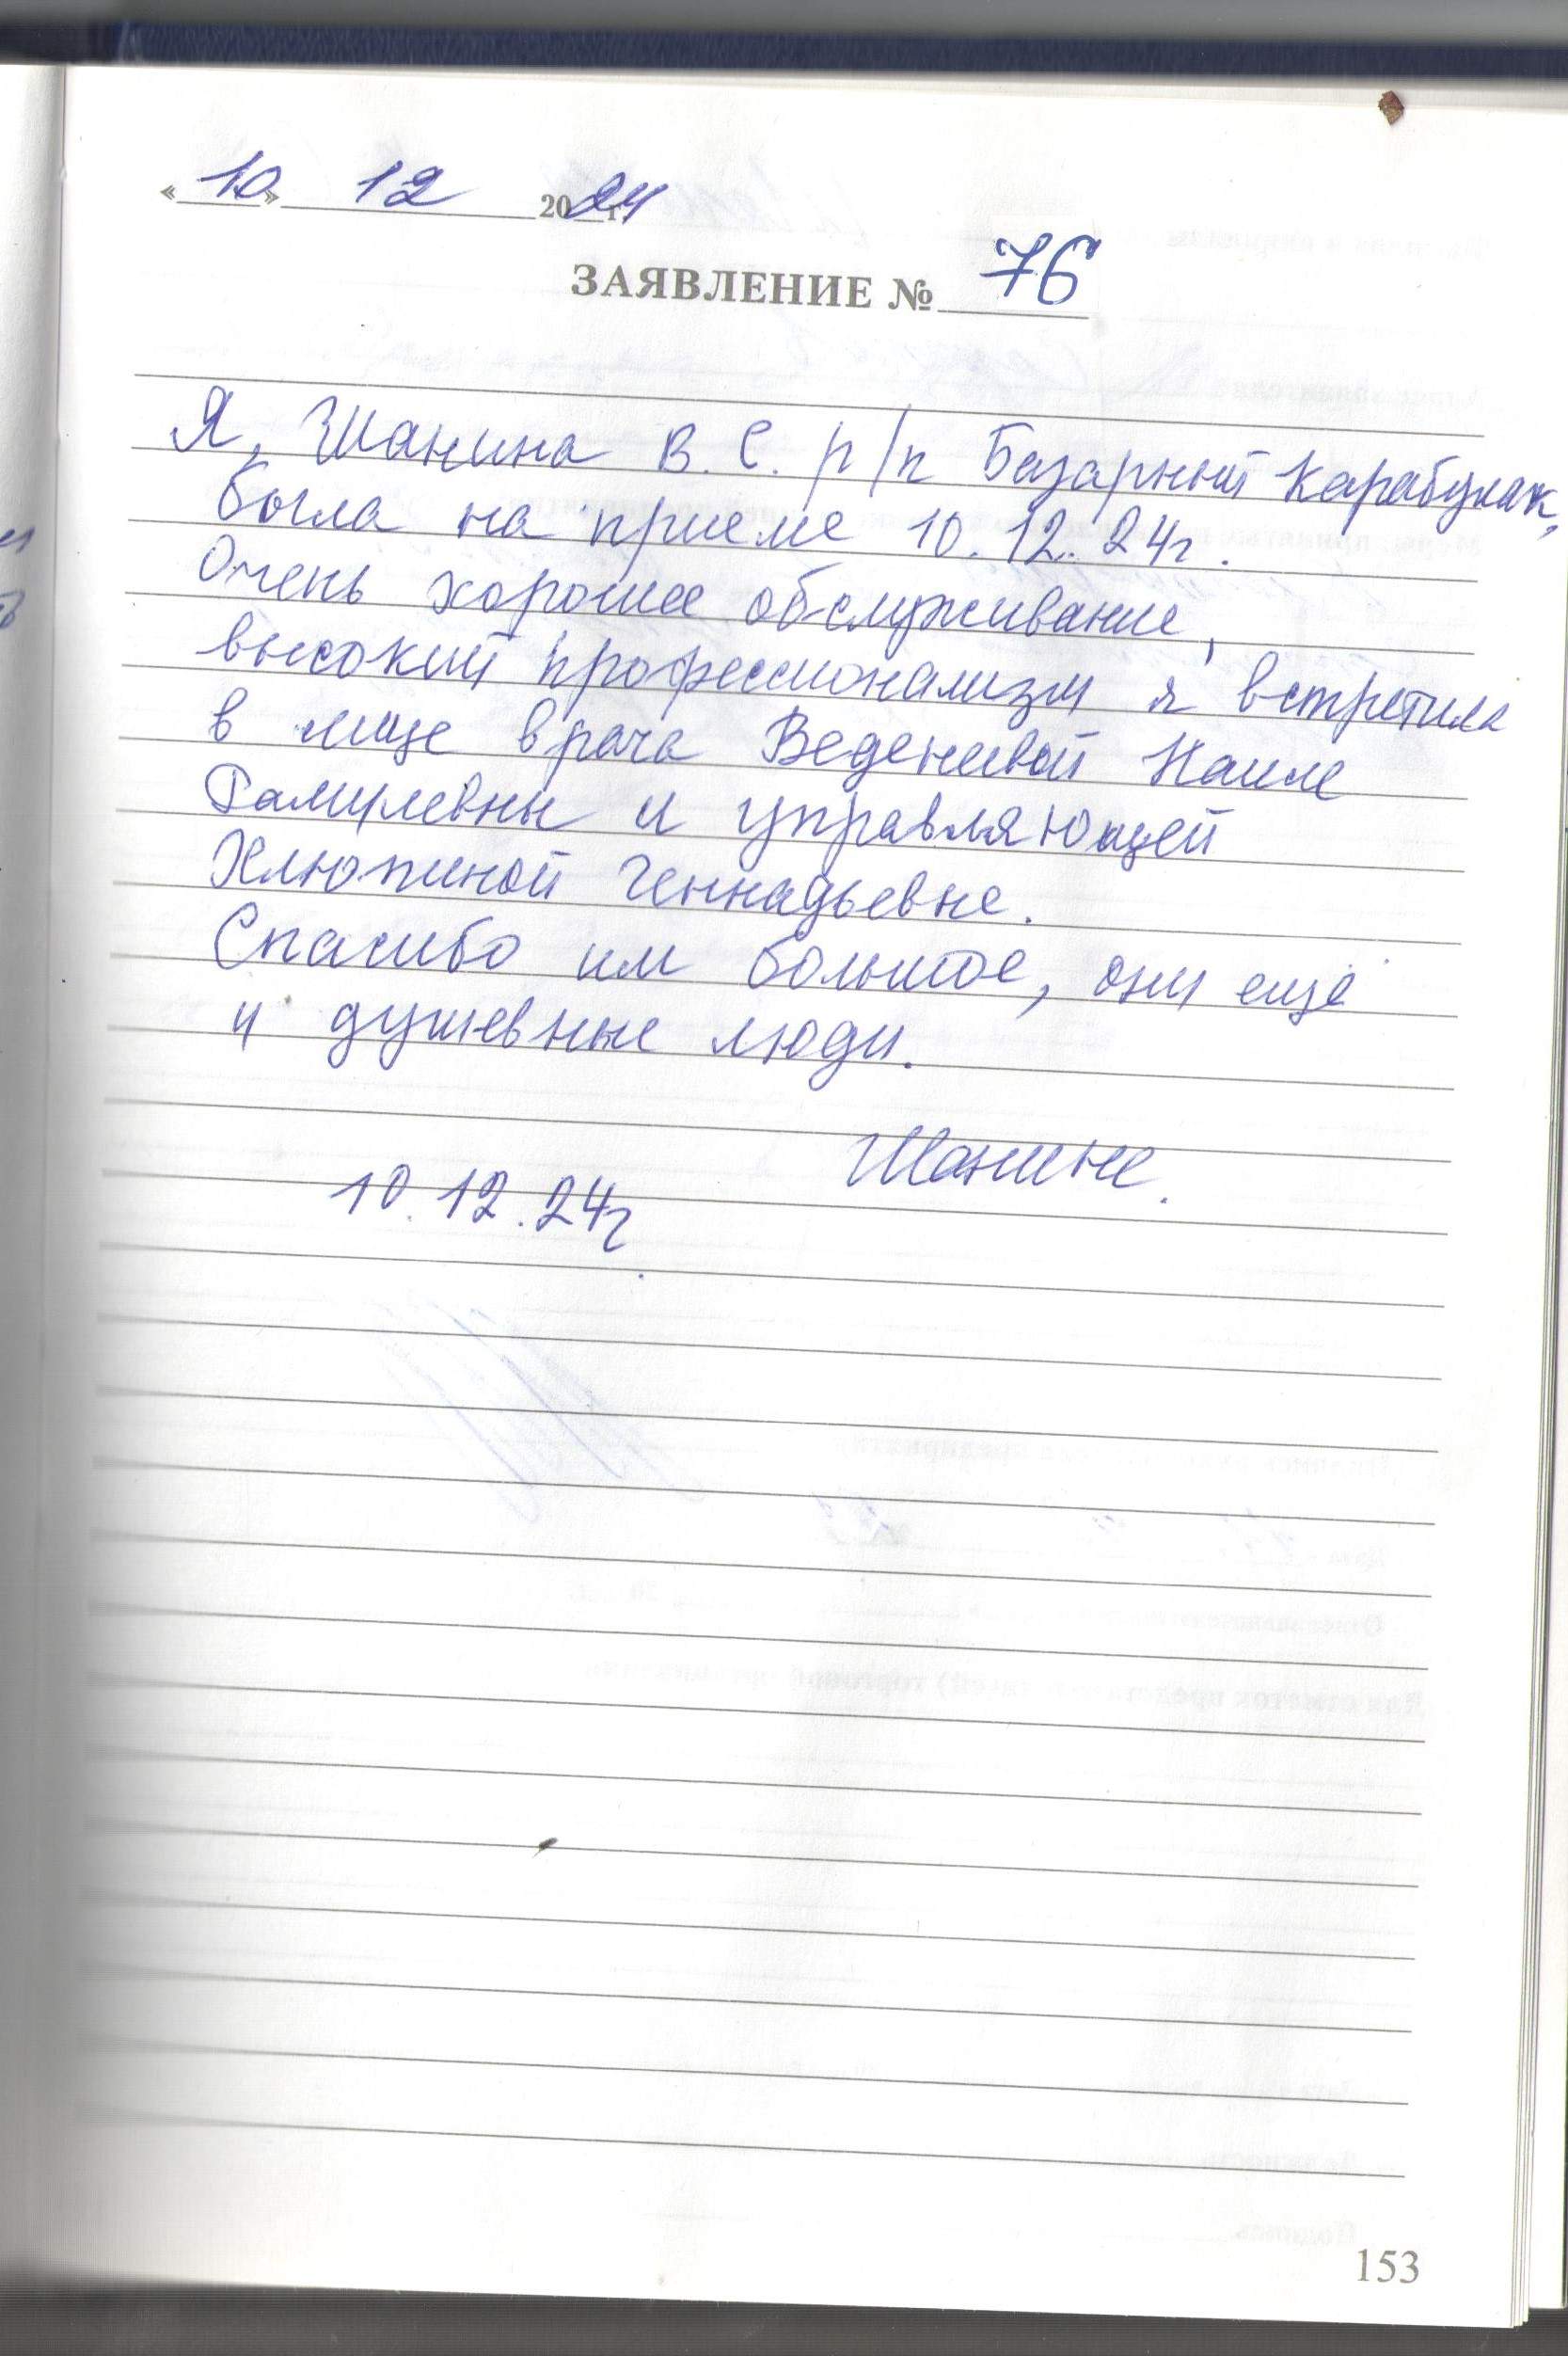 «10» 12 2024 г.
ЗАЯВЛЕНИЕ № 76
Я, Шанина В. С. р/п Базарный Карабулак,
была на приеме 10.12.24г.
Очень хорошее обслуживание,
высокий профессионализм я встретила
в лице врача Веденеевой Наиле
Рамилевны и управляющей
Хлюпиной Геннадьевне.
Спасибо им большое, они ещё
и душевные люди.
Шанина.
10.12.24г.
153